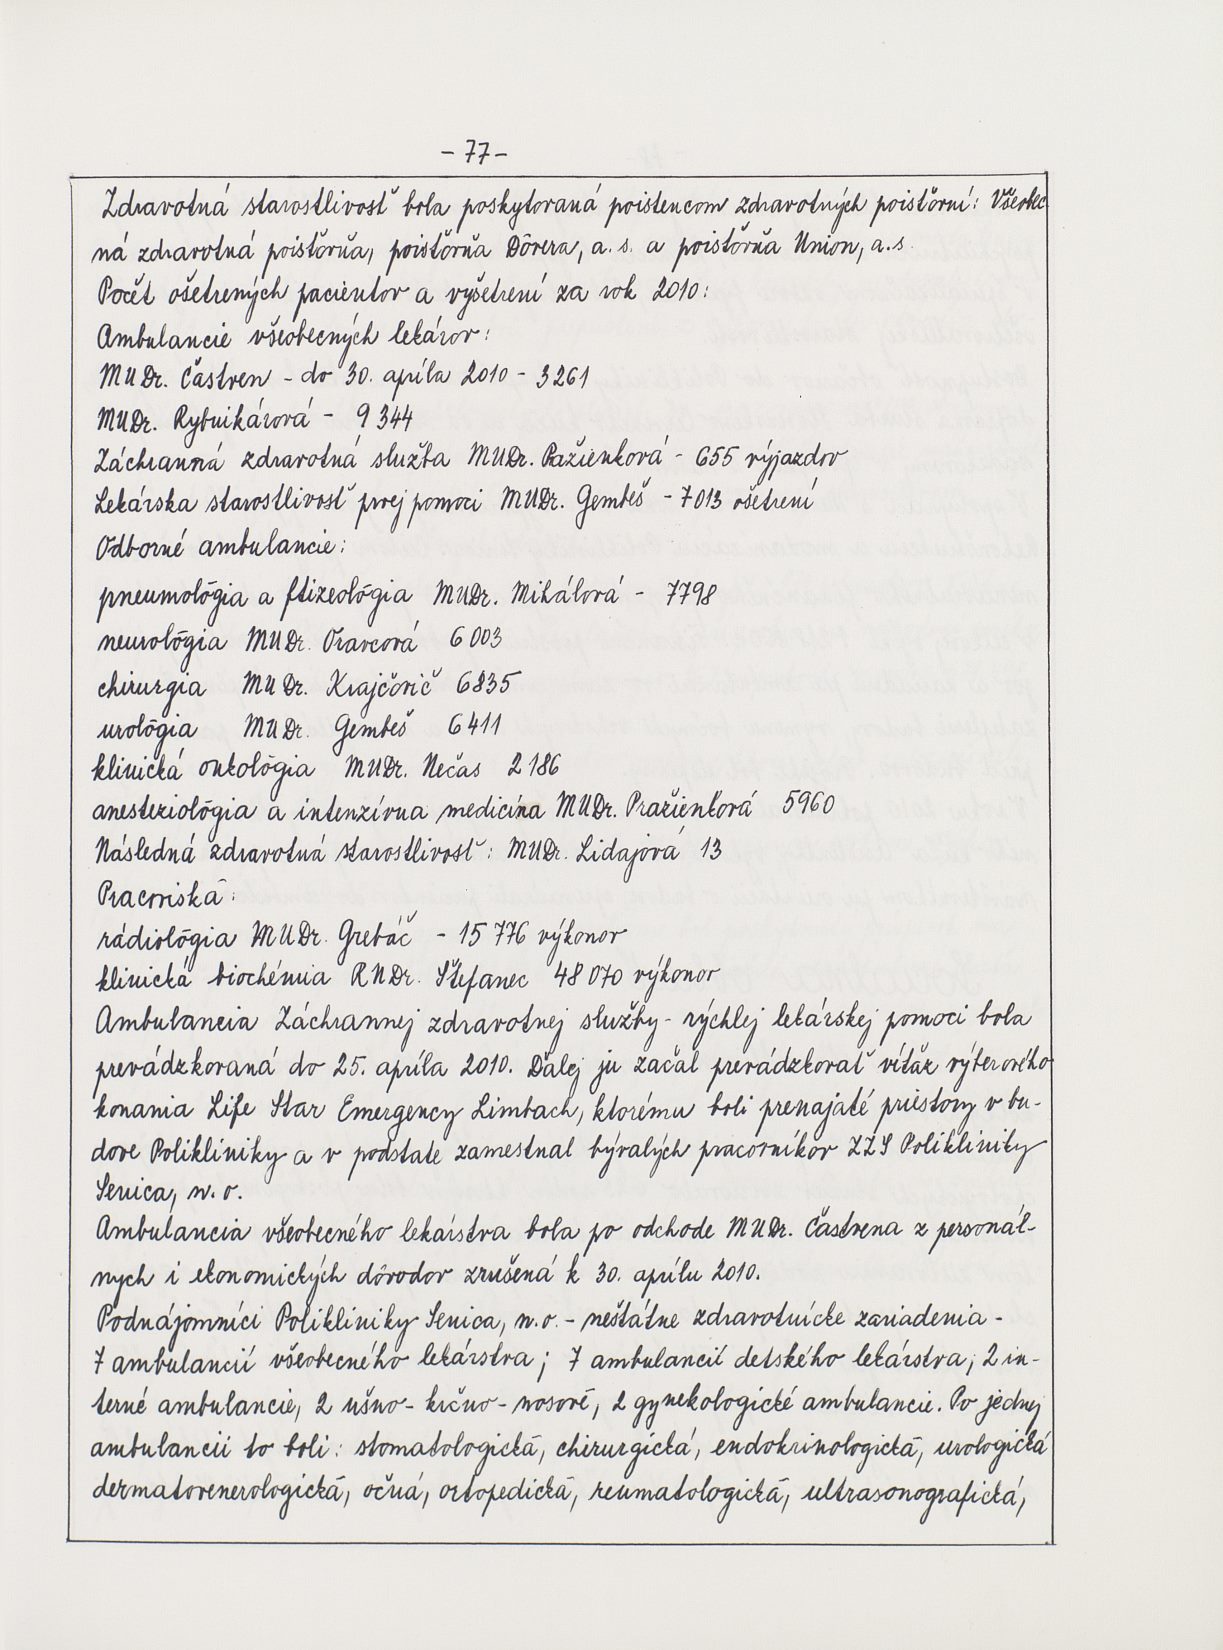 - 77 -
Zdravotná starostlivosť bola poskytovaná poistencom zdravotných poisťovní: Všeobec
ná zdravotná poisťovňa, poisťovňa Dôvera, a. s. a poisťovňa Union, a.s.
Počet ošetrených pacientov a vyšetrení za rok 2010:
Ambulancie všeobecných lekárov:
MUDr. Častven - do 30. apríla 2010 - 3261
MUDr. Rybnikárová - 9 344
Záchranná zdravotná služba MUDr. Pažienková - 655 výjazdov
Lekárska starostlivosť prvej pomoci MUDr. Gembeš - 7 013 ošetrení
Odborné ambulancie:
pneumológia a ftizeológia MUDr. Mihálová - 7798
neurológia MUDr. Oravcová 6 003
chirurgia MUDr. Krajčovič 6835
urológia MUDr. Gembeš 6411
klinická onkológia MUDr. Nečas 2 186
anesteziológia a intenzívna medicína MUDr. Pražienková 5960
Následná zdravotná starostlivosť: MUDr. Lidajová 13
Pracoviská:
rádiológia MUDr. Grebáč - 15 776 výkonov
klinická biochémia RNDr. Štefanec 48 070 výkonov
Ambulancia Záchrannej zdravotnej služby - rýchlej lekárskej pomoci bola
prevádzkovaná do 25. apríla 2010. Ďalej ju začal prevádzkovať víťaz výberového
konania Life Star Emergency Limbach, ktorému boli prenajaté priestory v bu-
dove Polikliniky a v podstate zamestnal bývalých pracovníkov ZZS Polikliniky
Senica, n. o.
Ambulancia všeobecného lekárstva bola po odchode MUDr. Častvena z personál-
nych i ekonomických dôvodov zrušená k 30. aprílu 2010.
Podnájomníci Polikliniky Senica, n.o. - neštátne zdravotnícke zariadenia -
7 ambulancií všeobecného lekárstva; 7 ambulancií detského lekárstva; 2 in-
terné ambulancie, 2 ušno- krčno- nosové, 2 gynekologické ambulancie. Po jednej
ambulancii to boli: stomatologická, chirurgická, endokrinologická, urologická
dermatovenerologická, očná, ortopedická, reumatologická, ultrasonografická,